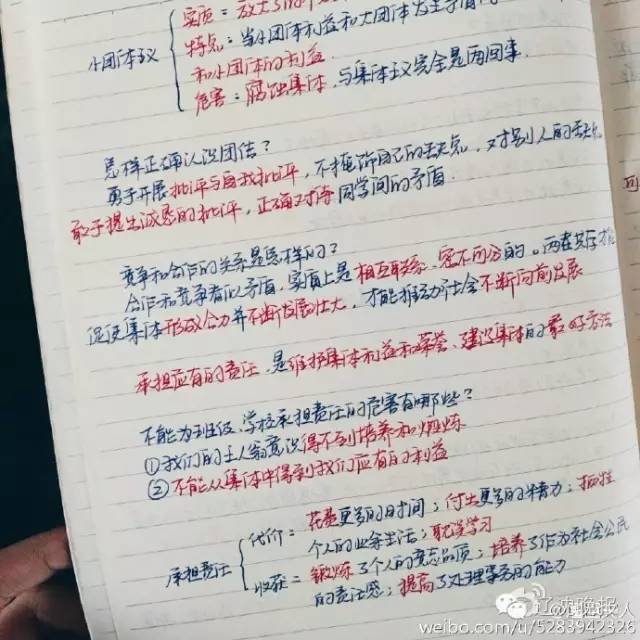 小团体主义
实质：放大了的个人
特点：当小团体利益和大团体发生矛盾
和小团体的利益
危害：腐蚀集体，与集体主义完全是两回事.
怎样正确认识团结？
勇于开展批评与自我批评，不掩饰自己的缺点，对别人的缺点
敢于提出诚恳的批评，正确对待同学间的矛盾.
竞争和合作的关系是怎样的？
合作和竞争看似矛盾，实质上是相互联系、密不可分的。两者共存才能
促使集体形成合力并不断发展壮大，才能推动社会不断向前发展
承担应有的责任，是维护集体利益和荣誉、建设集体的最好方法
不能为班级、学校承担责任的危害有哪些？
①我们的主人翁意识得不到培养和锻炼
②不能从集体中得到我们应有的利益
承担责任
代价：花费更多的时间；付出更多的精力；牺牲
个人的业余生活；耽误学习
收获：锻炼了个人的意志品质；培养了作为社会公民
的责任感；提高了处理事务的能力
可
辽沈晚报
weibo.com/u/5283942326